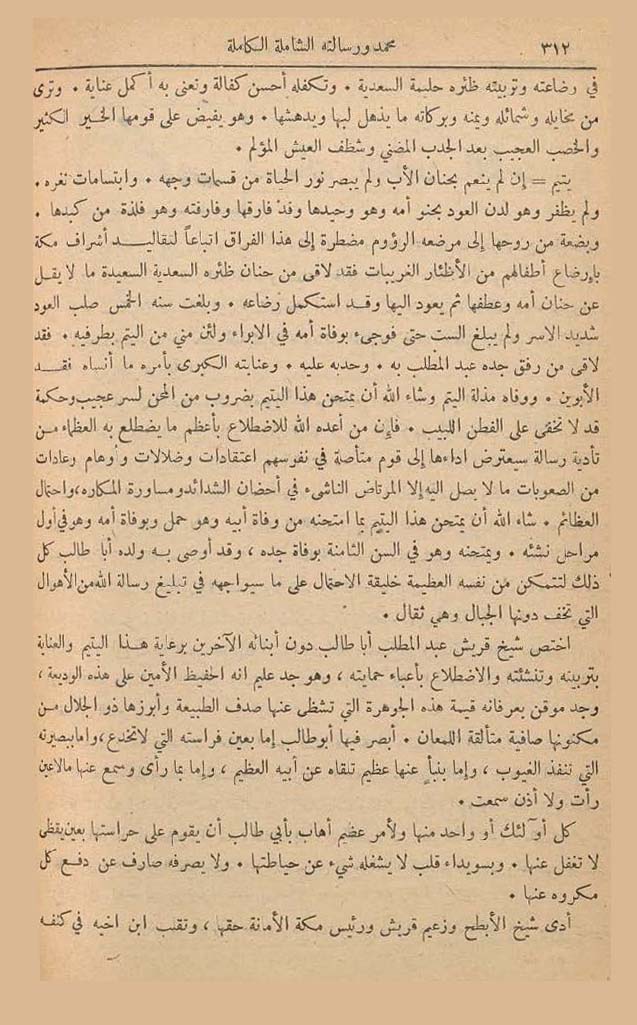 ٣١٢ محمد ورسالته الشاملة الكاملة
في رضاعته وتربيته ظئره حليمة السعدية . وتكفله أحسن كفالة وتعنى به أكمل عناية . وترى
من مخايله وشمائله ويمنه وبركاته ما يذهل لبها ويدهشها . وهو يفيض على قومها الخير الكثير
والخصب العجيب بعد الجدب المضني وشظف العيش المؤلم .
يتيم = إن لم ينعم بحنان الأب ولم يبصر نور الحياة من قسمات وجهه . وابتسامات ثغره .
ولم يظفر وهو لدن العود بحنو أمه وهو وحيدها وقد فارقها وفارقته وهو فلذة من كبدها .
وبضعة من روحها إلى مرضعه الرؤوم مضطرة إلى هذا الفراق اتباعاً لتقاليد أشراف مكة
بإرضاع أطفالهم من الأظئار الغريبات فقد لاقى من حنان ظئره السعدية السعيدة ما لا يقل
عن حنان أمه وعطفها ثم يعود اليها وقد استكمل رضاعه . وبلغت سنه الخمس صلب العود
شديد الاسر ولم يبلغ الست حتى فوجىء بوفاة أمه في الابواء ولئن مني من اليتم بطرفيه . فقد
لاقى من رفق جده عبد المطلب به . وحدبه عليه . وعنايته الكبرى بأمره ما أنساه فقد
الأبوين . ووقاه مذلة اليتم وشاء الله أن يمتحن هذا اليتيم بضروب من المحن لسر عجيب وحكمة
قد لا تخفى على الفطن اللبيب . فإن من أعده الله للاضطلاع بأعظم ما يضطلع به العظماء من
تأدية رسالة سيعترض اداءها إلى قوم متأصلة في نفوسهم اعتقادات وضلالات واوهام وعادات
من الصعوبات ما لا يصل اليه إلا المرتاض الناشىء في أحضان الشدائد ومساورة المكاره، واحتمال
العظائم . شاء الله أن يمتحن هذا اليتيم بما امتحنه من وفاة أبيه وهو حمل وبوفاة أمه وهو في أول
مراحل نشئه . ويمتحنه وهو في السن الثامنة بوفاة جده ، وقد أوصى به ولده أبا طالب كل
ذلك لتتمكن من نفسه العظيمة خليقة الاحتمال على ما سيواجهه في تبليغ رسالة الله من الأهوال
التي تخف دونها الجبال وهي ثقال .
اختص شيخ قريش عبد المطلب أبا طالب دون أبنائه الآخرين برعاية هذا اليتيم والعناية
بتربيته وتنشئته والاضطلاع بأعباء حمايته ، وهو جد عليم انه الحفيظ الأمين على هذه الوديعة ،
وجد موقن بعرفانه قيمة هذه الجوهرة التي تشظى عنها صدف الطبيعة وأبرزها ذو الجلال من
مكنونها صافية متألقة اللمعان . أبصر فيها أبو طالب إما بعين فراسته التي لا تخدع، واما ببصيرته
التي تنفذ الغيوب ، وإما بنبأ عنها عظيم تلقاه عن أبيه العظيم ، وإما بما رأى وسمع عنها ما لا عين
رأت ولا أذن سمعت .
كل أولئك أو واحد منها ولأمر عظيم أهاب بأبي طالب أن يقوم على حراستها بعين يقظى
لا تغفل عنها . وبسويداء قلب لا يشغله شيء عن حياطتها . ولا يصرفه صارف عن دفع كل
مكروه عنها .
أدى شيخ الأبطح وزعيم قريش ورئيس مكة الأمانة حقها ، وتقلب ابن اخيه في كنفه